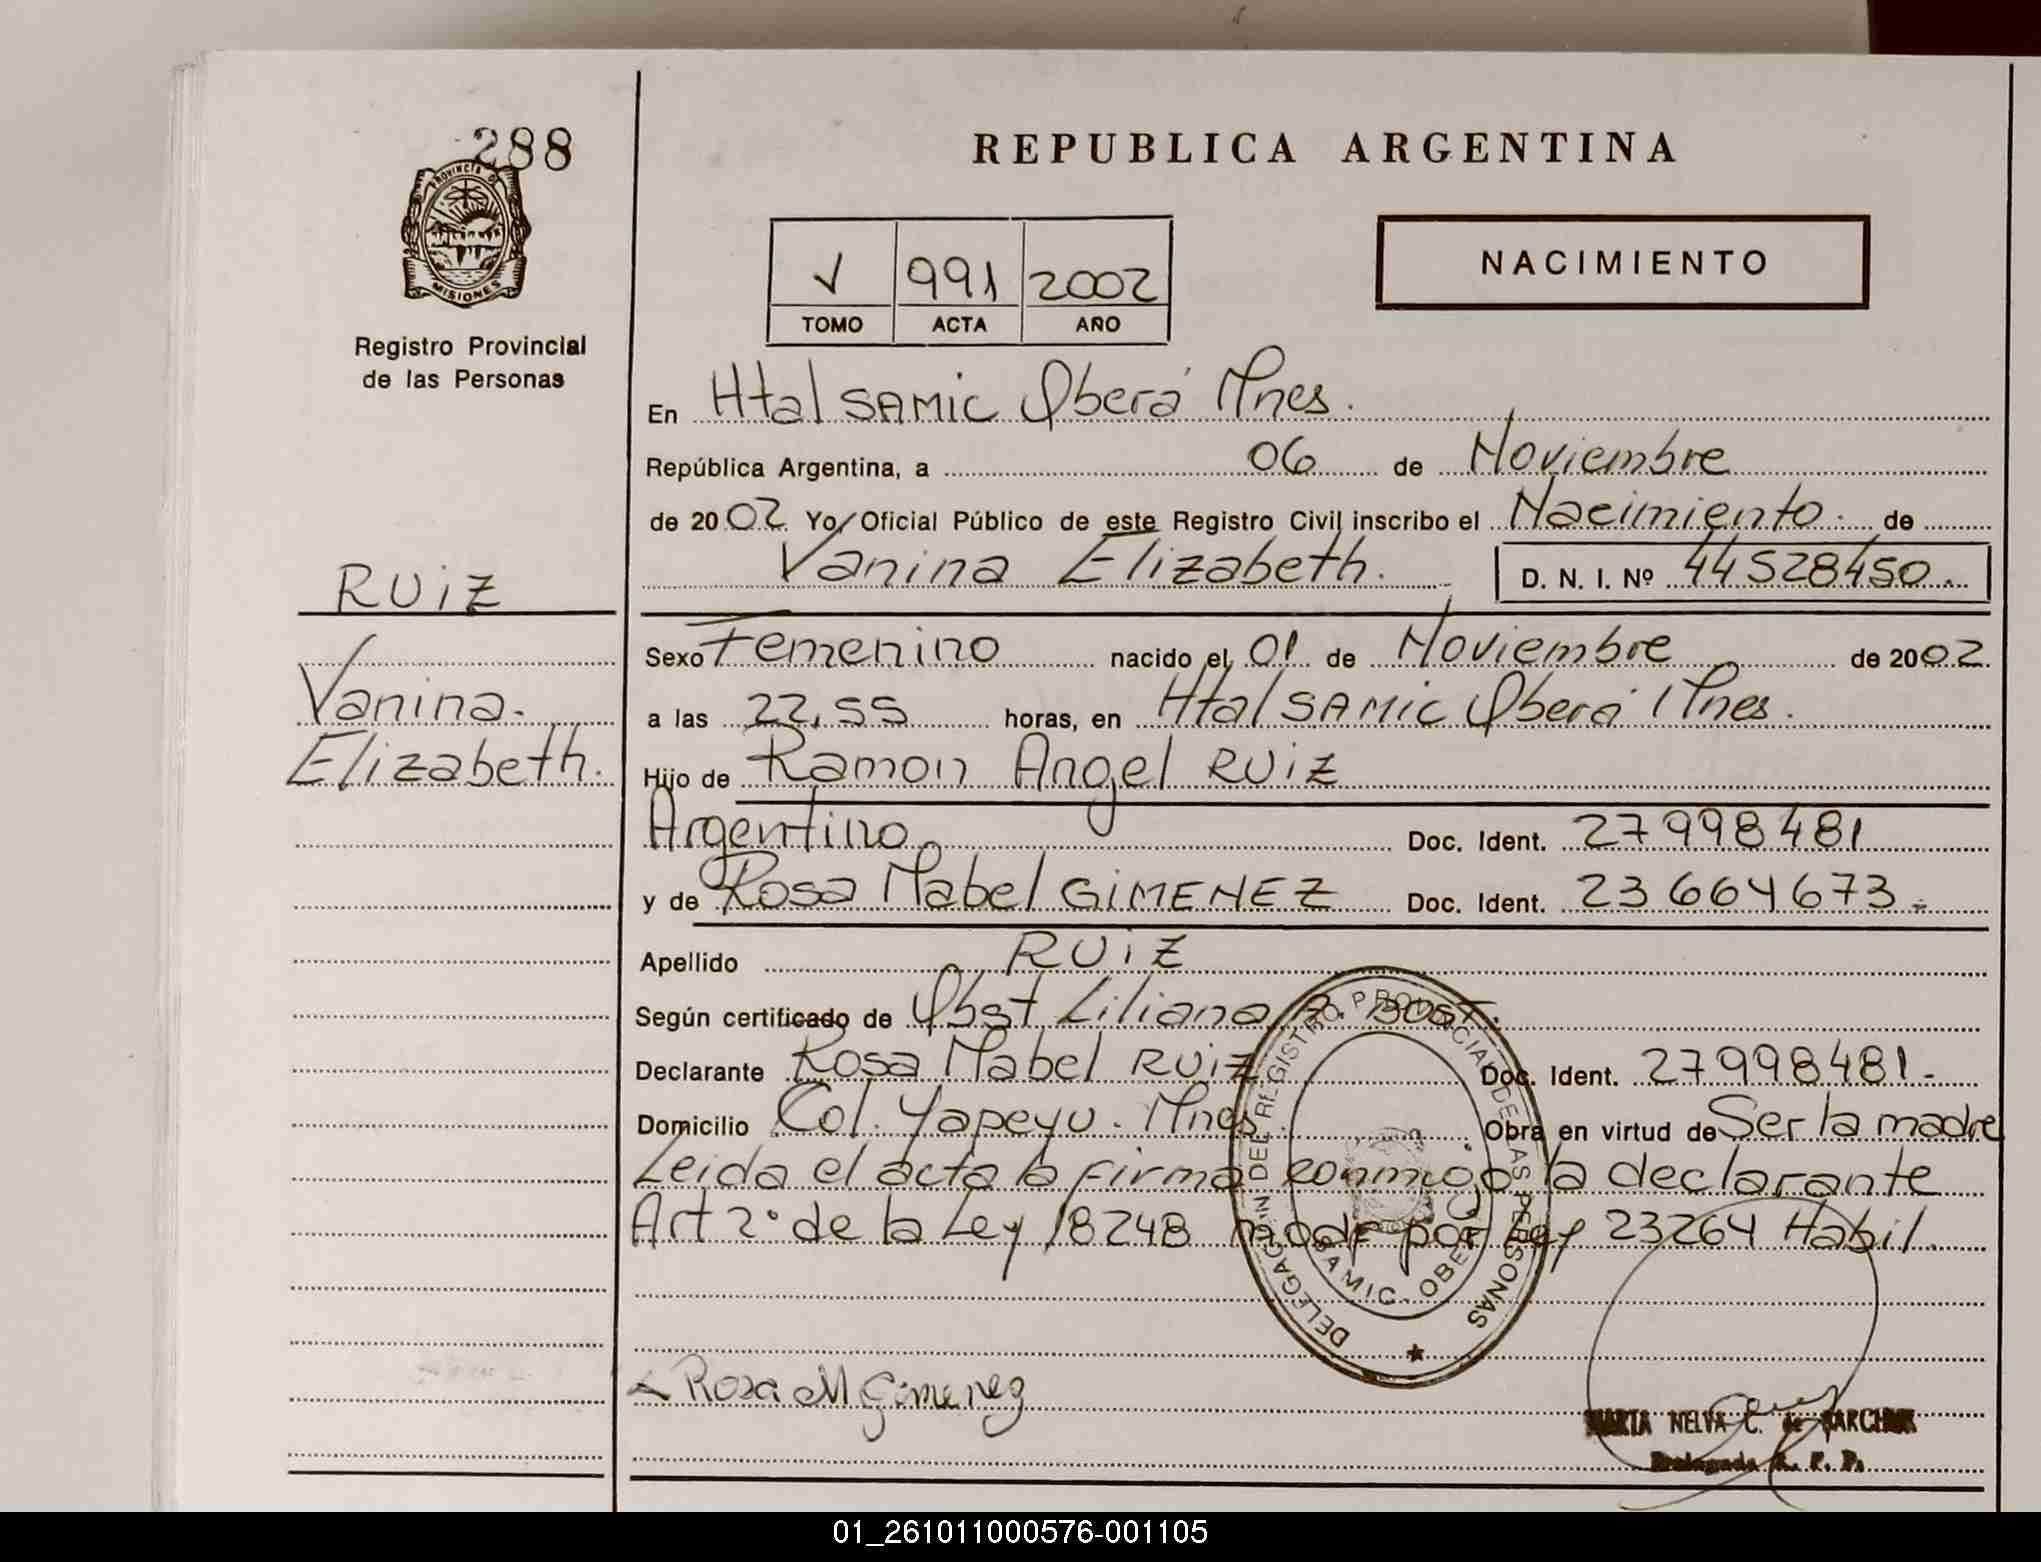 288
PROVINCIA DE
MISIONES
Registro Provincial
de las Personas
RUIZ
Vanina
Elizabeth.
REPUBLICA ARGENTINA
991 2002
TOMO ACTA AÑO
NACIMIENTO
En Htal SAMIC Oberá Mnes.
República Argentina, a 06 de Noviembre
de 2002 Yo, Oficial Público de este Registro Civil inscribo el Nacimiento de
Vanina Elizabeth. D. N. I. Nº 44528450
Sexo Femenino nacido el 01 de Noviembre de 2002
a las 22,55 horas, en Htal SAMIC Oberá Mnes.
Hijo de Ramon Angel RUIZ
Argentino Doc. Ident. 27998481
y de Rosa Mabel GIMENEZ Doc. Ident. 23664673
Apellido RUIZ
Según certificado de Obst Liliana
Declarante Rosa Mabel RUIZ Doc. Ident. 27998481
Domicilio Col. Yapeyu. Mnes. Obra en virtud de Ser la madre
Leida el acta la firma conmigo la declarante
Art 2° de la Ley 18248 modf por Ley 23264 Habil.
DELEGACION DEL REGISTRO PROVINCIAL DE LAS PERSONAS
SAMIC - OBERA
Rosa M Gimenez
MARTA NELVA C. de
Delegada R. P. P.
01_261011000576-001105